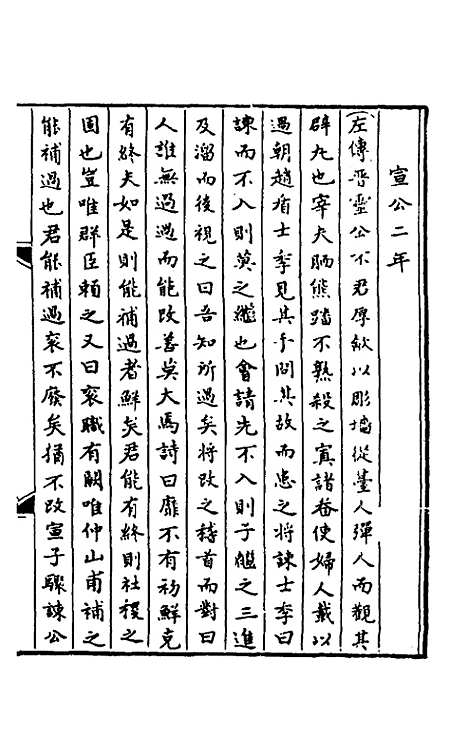 宣公二年
(左傳晉靈公不君厚斂以彫墻從臺人彈人而觀其
辟丸也宰夫胹熊蹯不熟殺之寘諸畚使婦人載以
過朝趙盾士季見其手問其故而患之將諫士季曰
諫而不入則莫之繼也會請先不入則子繼之三進
及溜而後視之曰吾知所過矣將改之稽首而對曰
人誰無過過而能改善莫大焉詩曰靡不有初鮮克
有終夫如是則能補過者鮮矣君能有終則社稷之
固也豈唯群臣賴之又曰袞職有闕唯仲山甫補之
能補過也君能補過袞不廢矣猶不改宣子驟諫公